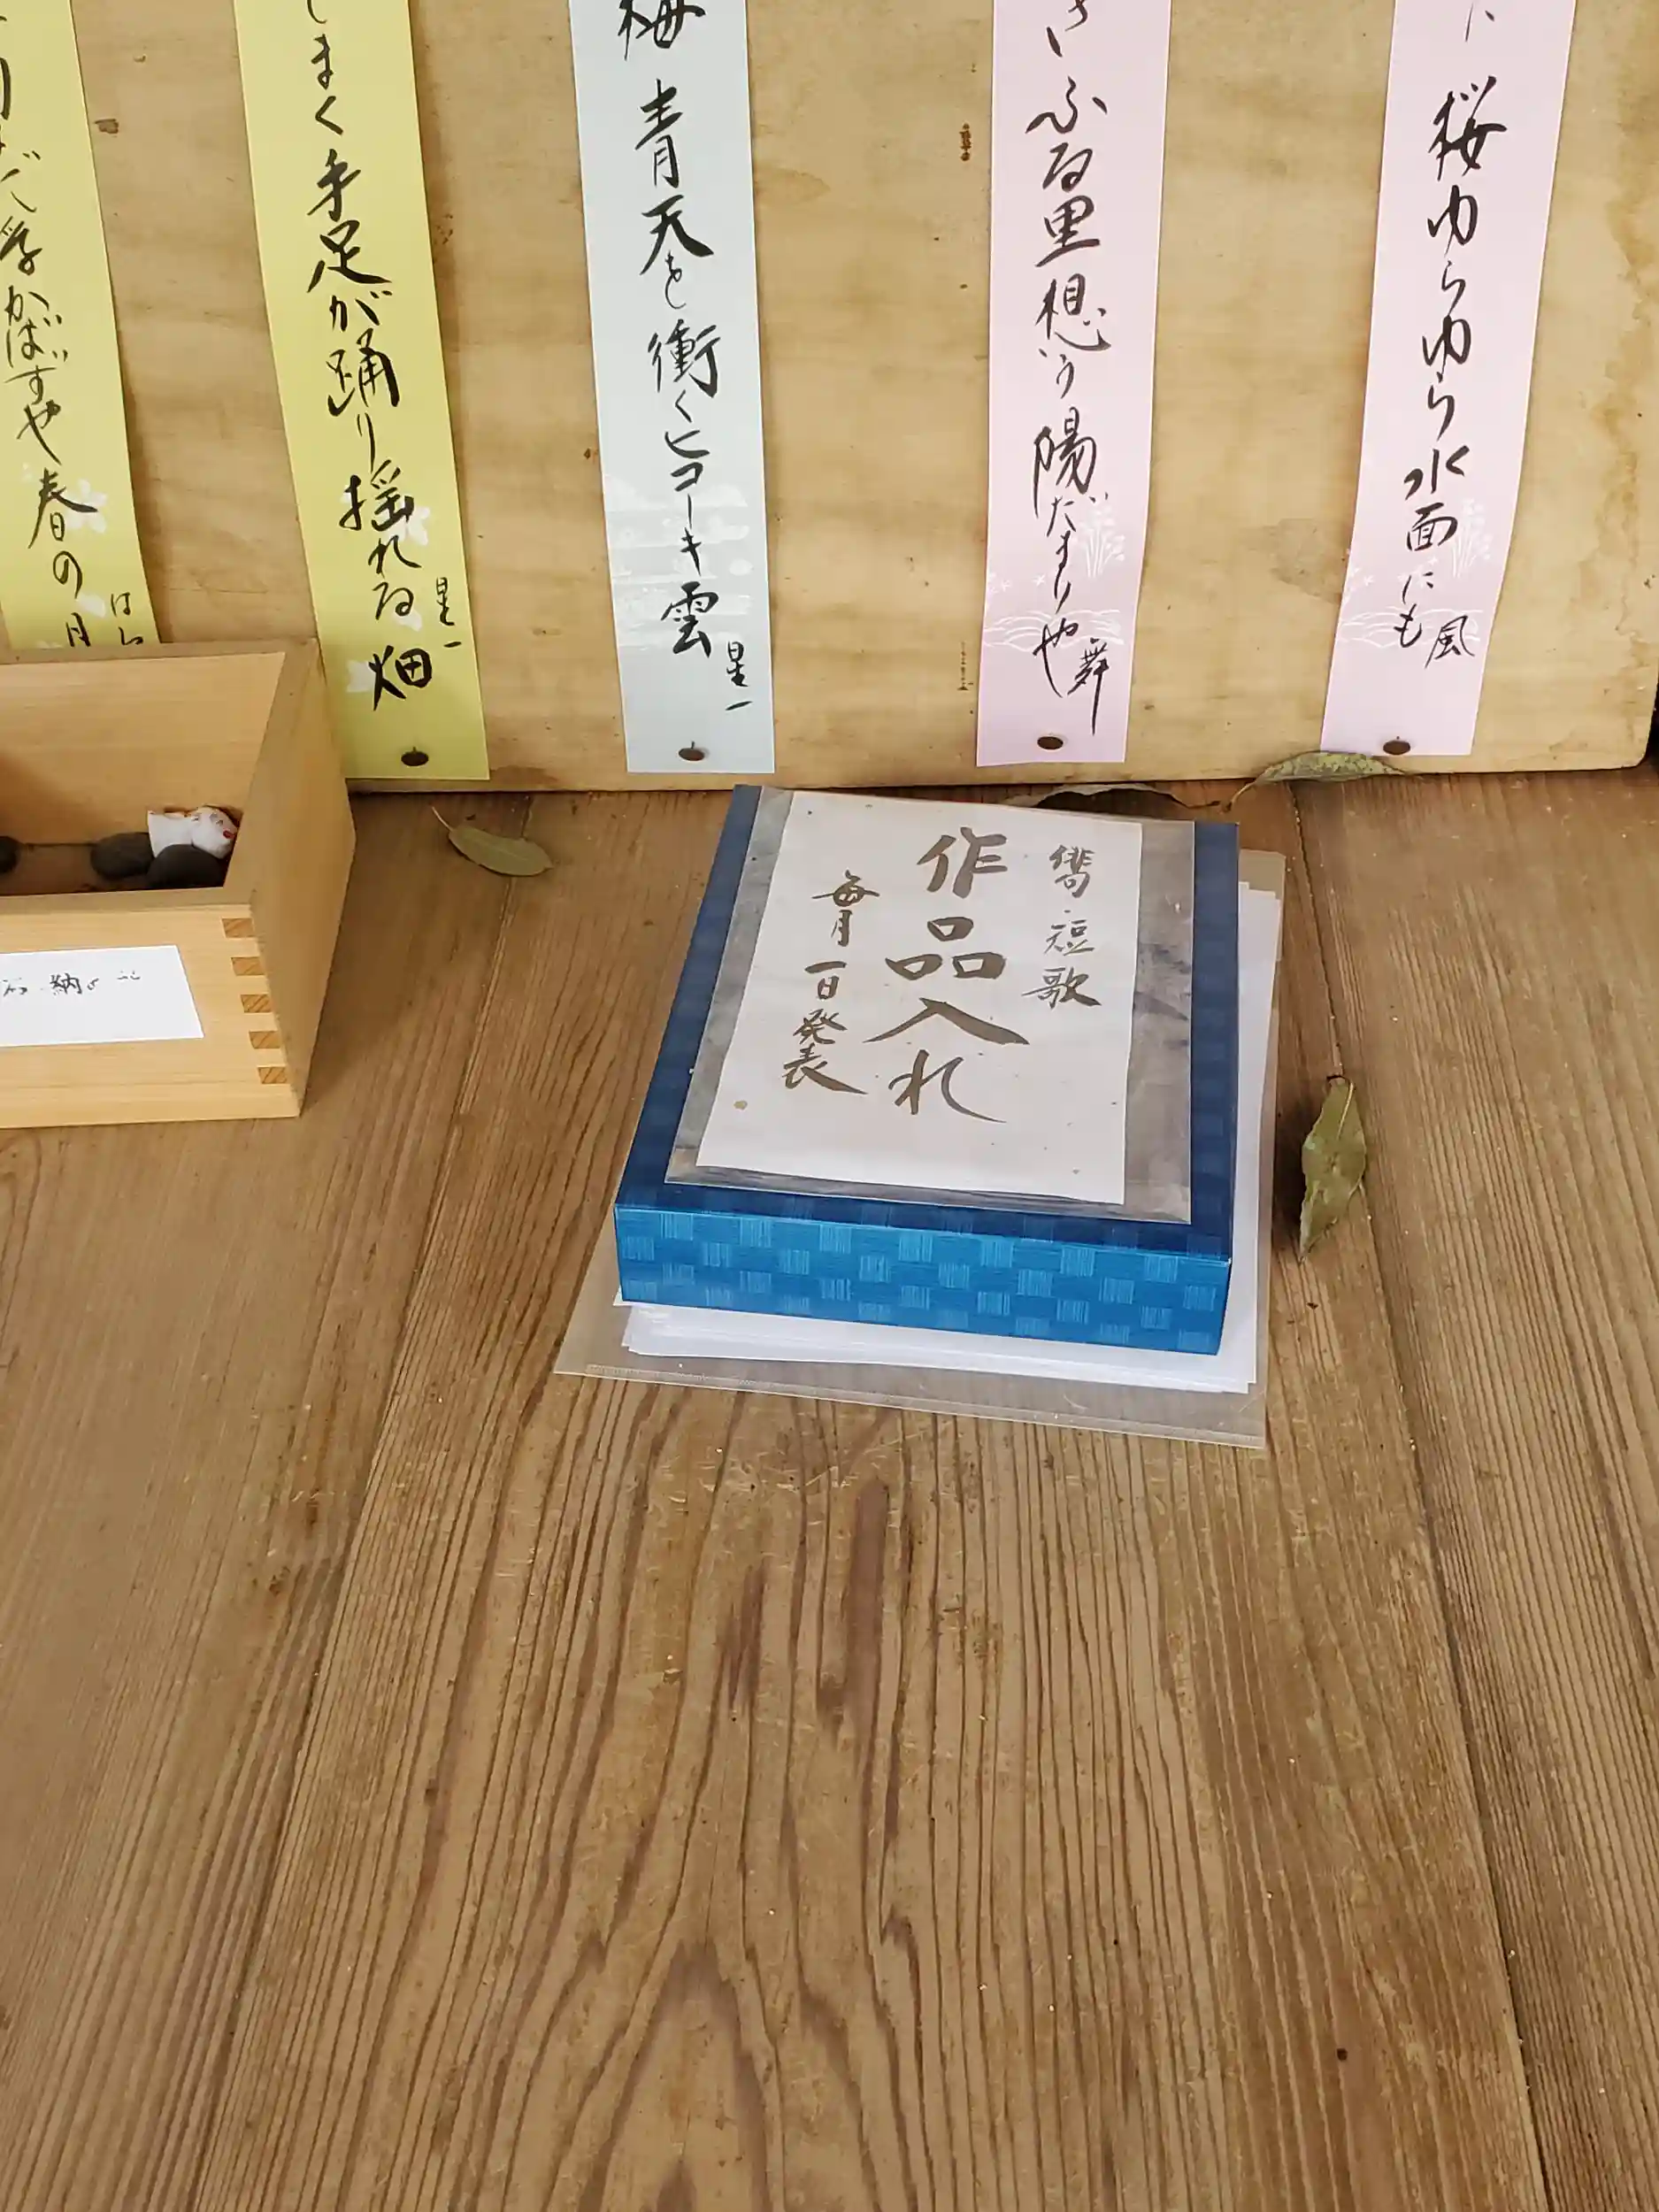 桜ゆらゆら水面にも
風
ふる里想う陽だまりや
舞
梅 青天を衝くヒコーキ雲
星一
しまく手足が踊り揺れる畑
星一
浮かばずや春の月
俳句 短歌
作品入れ
毎月一日発表
納め